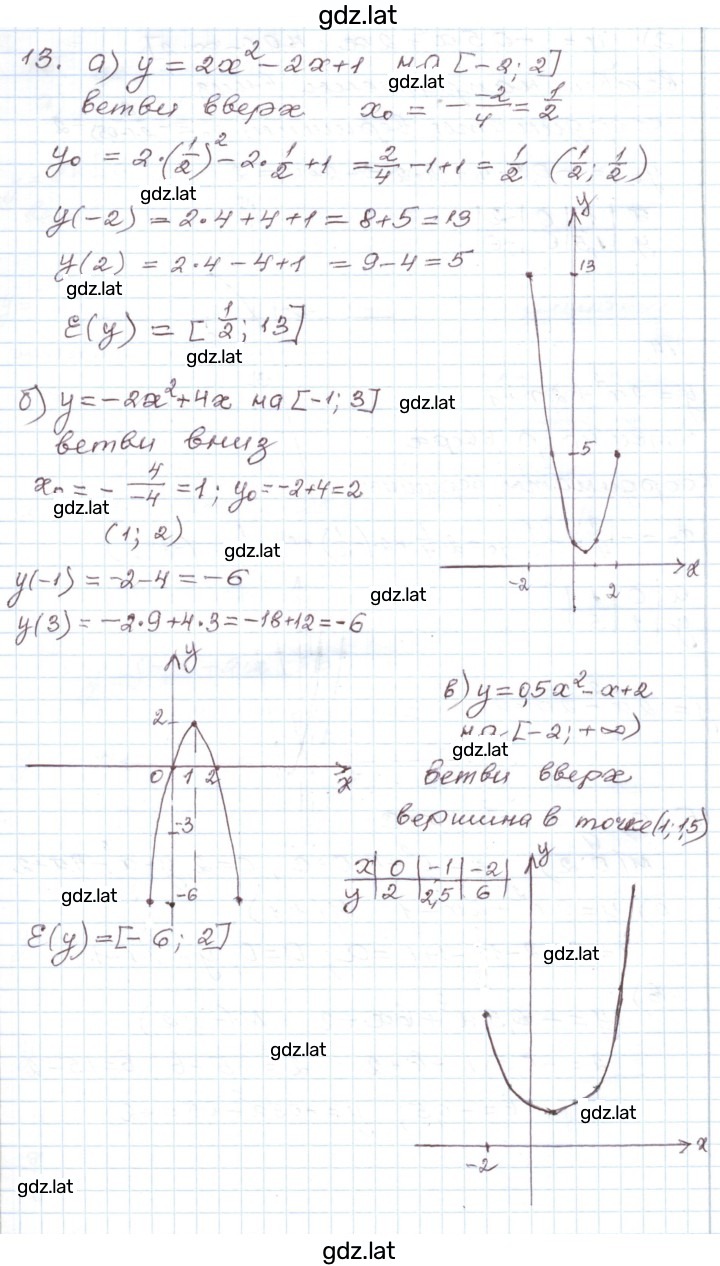 gdz.lat
13. а) y = 2x² - 2x + 1 на [-2; 2]
gdz.lat
ветви вверх x₀ = - -2/4 = 1/2
y₀ = 2·(1/2)² - 2·1/2 + 1 = 2/4 - 1 + 1 = 1/2 (1/2; 1/2)
gdz.lat
y(-2) = 2·4 + 4 + 1 = 8 + 5 = 13
y(2) = 2·4 - 4 + 1 = 9 - 4 = 5
gdz.lat
E(y) = [1/2; 13]
gdz.lat
y
13
5
-2
2
x
б) y = -2x² + 4x на [-1; 3] gdz.lat
ветви вниз
xₙ = - 4/-4 = 1; y₀ = -2 + 4 = 2
gdz.lat
(1; 2)
gdz.lat
y(-1) = -2 - 4 = -6
gdz.lat
y(3) = -2·9 + 4·3 = -18 + 12 = -6
y
2
0 1 2
x
-3
-6
gdz.lat
E(y) = [-6; 2]
в) y = 0,5x² - x + 2
на [-2; +∞)
gdz.lat
ветви вверх
вершина в точке (1; 1,5)
x | 0 | -1 | -2
y | 2 | 2,5 | 6
y
gdz.lat
gdz.lat
gdz.lat
x
-2
gdz.lat
gdz.lat